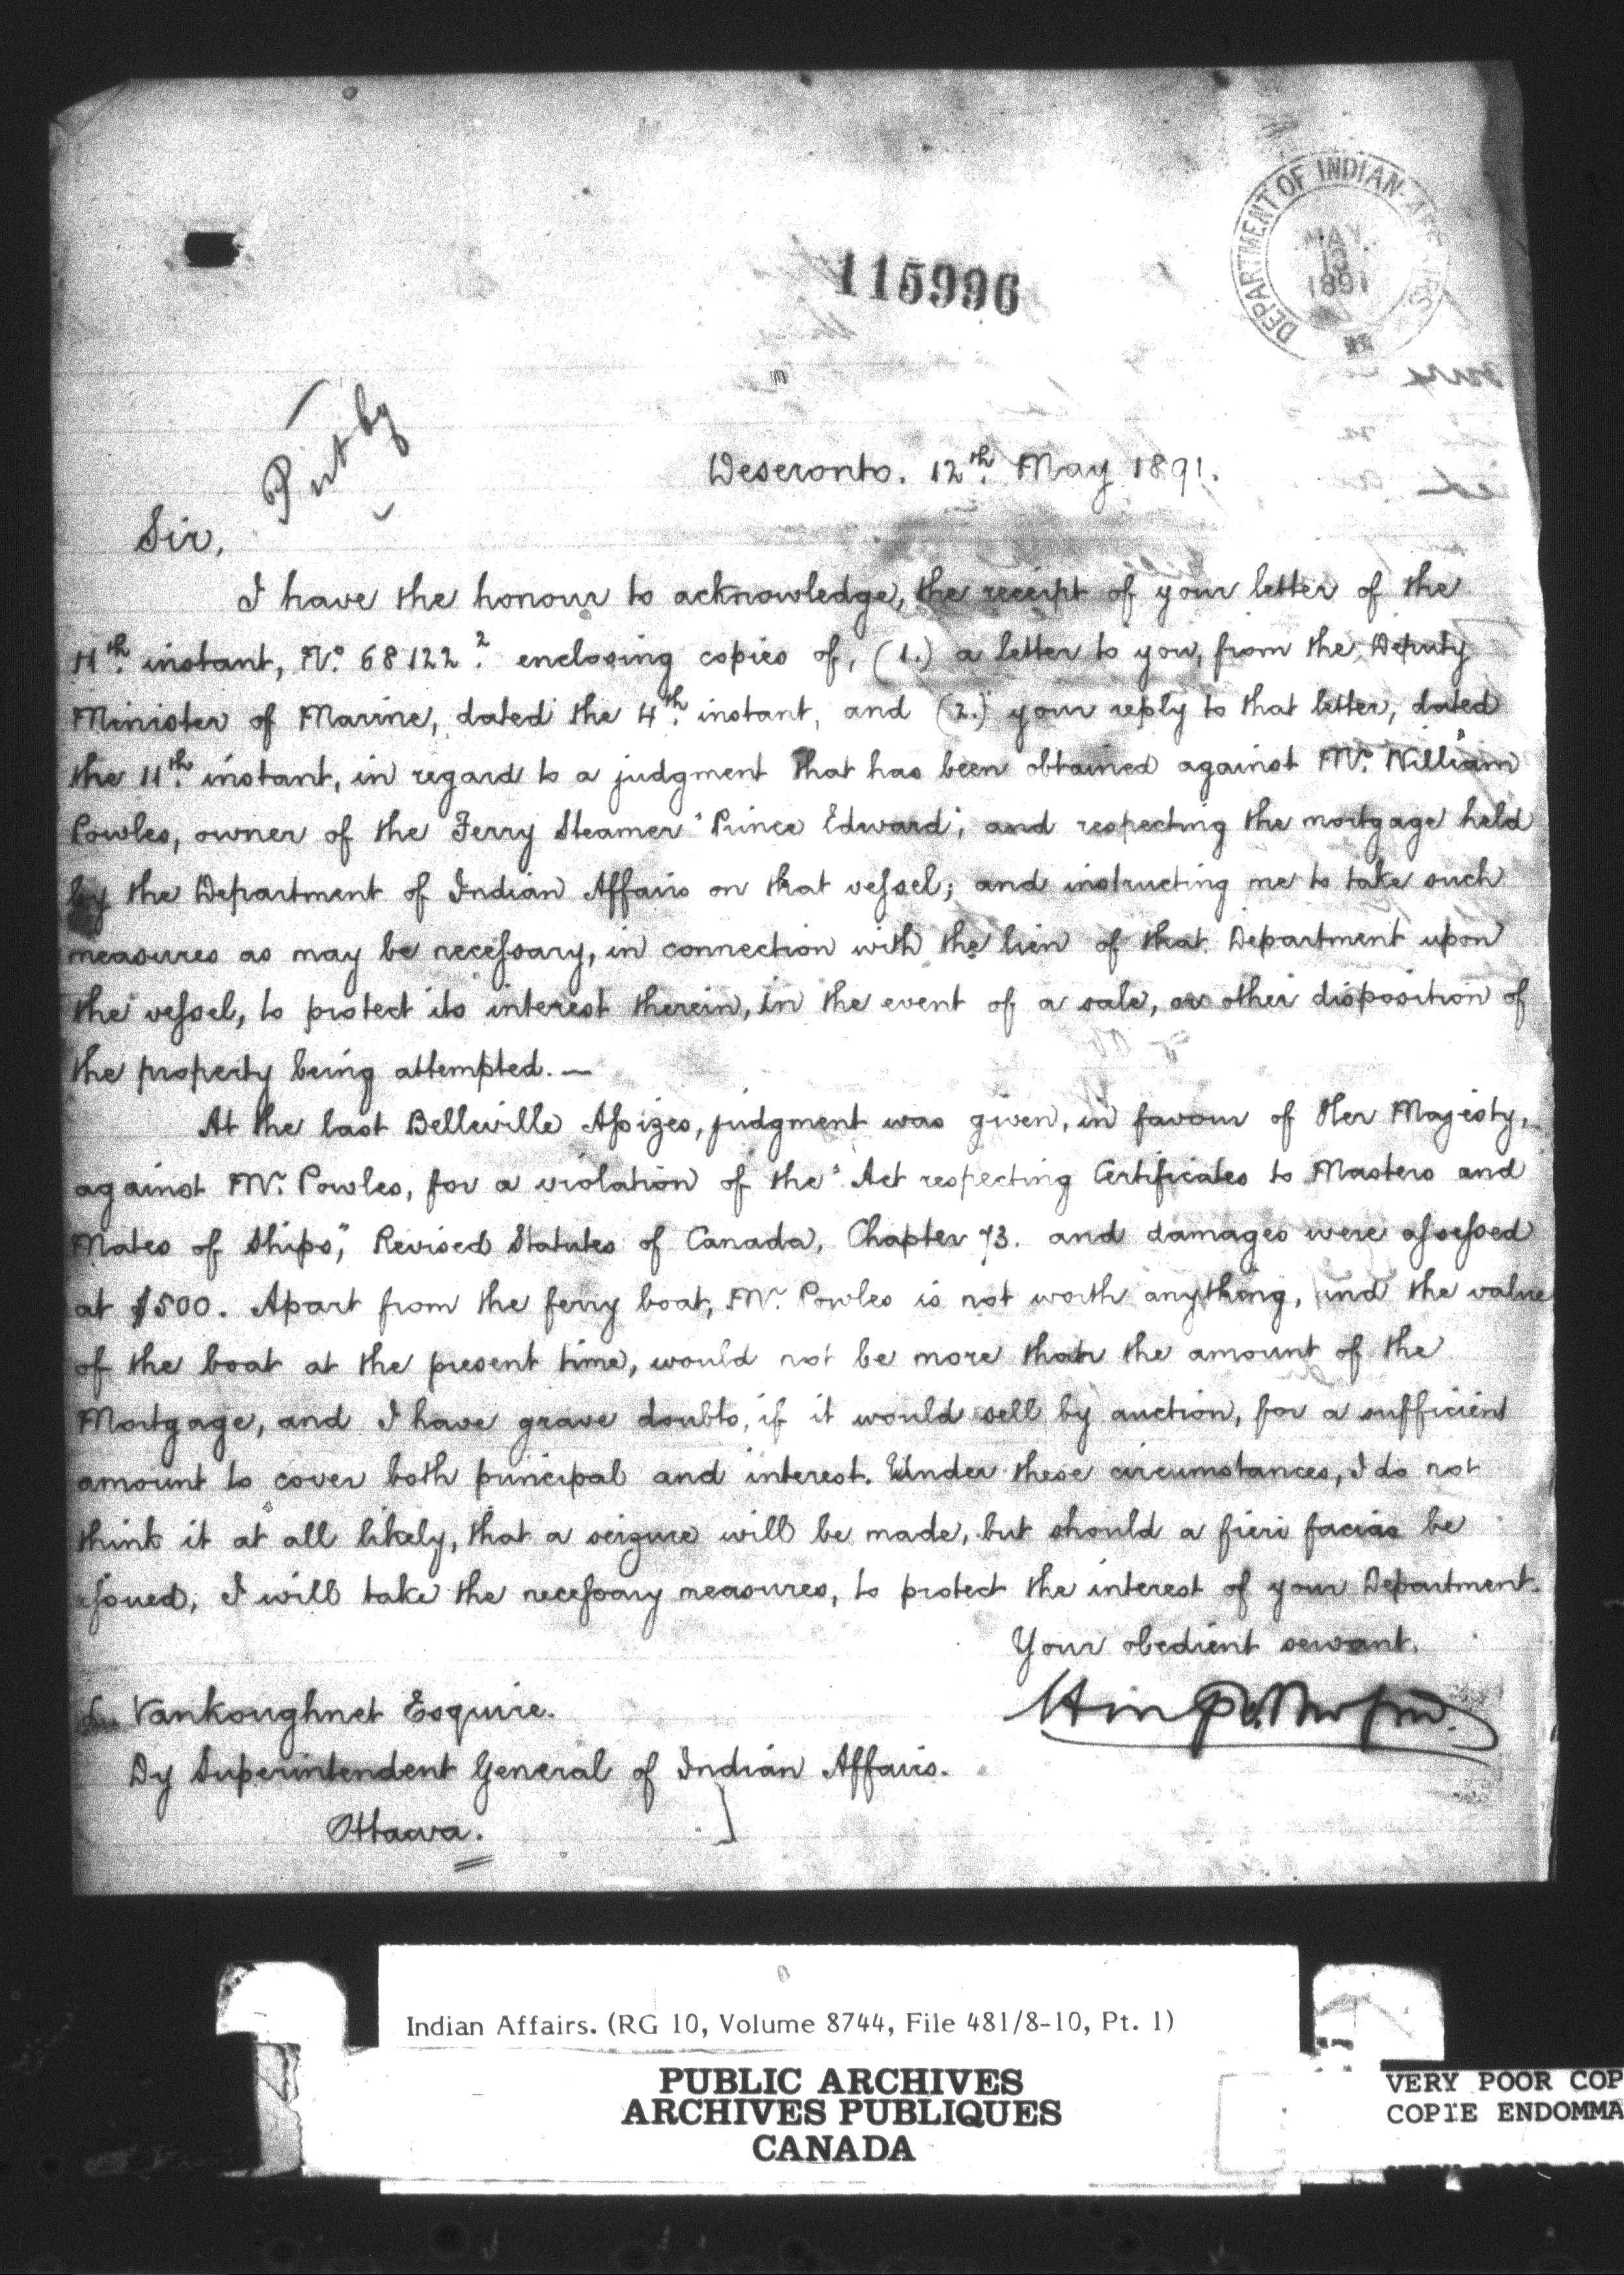 DEPARTMENT OF INDIAN AFFAIRS
MAY
13
1891
115996
Put by
Deseronto. 12th. May 1891.
Sir,
I have the honour to acknowledge, the receipt of your letter of the
11th. instant, No. 68122 2. enclosing copies of, (1.) a letter to you, from the Deputy
Minister of Marine, dated the 4th. instant, and (2.) your reply to that letter, dated
the 11th. instant, in regard to a judgment that has been obtained against Mr. William
Powles, owner of the Ferry Steamer "Prince Edward"; and respecting the mortgage held
by the Department of Indian Affairs on that vessel; and instructing me to take such
measures as may be necessary, in connection with the lien of that Department upon
the vessel, to protect its interest therein, in the event of a sale, or other disposition of
the property being attempted. —
At the last Belleville Assizes, judgment was given, in favour of Her Majesty,
against Mr. Powles, for a violation of the "Act respecting Certificates to Masters and
Mates of Ships," Revised Statutes of Canada, Chapter 73. and damages were assessed
at $500. Apart from the ferry boat, Mr. Powles is not worth anything, and the value
of the boat at the present time, would not be more than the amount of the
Mortgage, and I have grave doubts, if it would sell by auction, for a sufficient
amount to cover both principal and interest. Under these circumstances, I do not
think it at all likely, that a seizure will be made, but should a fieri facias be
issued, I will take the necessary measures, to protect the interest of your Department.
Your obedient servant,
Vankoughnet Esquire.
Dy Superintendent General of Indian Affairs.
Ottawa.
Indian Affairs. (RG 10, Volume 8744, File 481/8-10, Pt. 1)
PUBLIC ARCHIVES
ARCHIVES PUBLIQUES
CANADA
VERY POOR COP
COPIE ENDOMMA